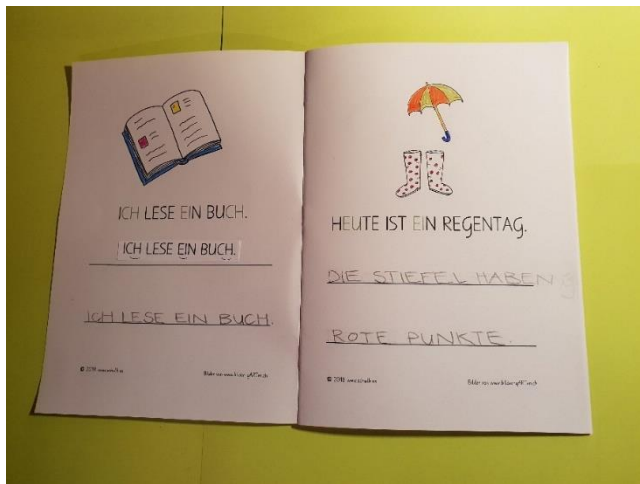 ICH LESE EIN BUCH.
ICH LESE EIN BUCH.
ICH LESE EIN BUCH.
© 2018
HEUTE IST EIN REGENTAG.
DIE STIEFEL HABEN
ROTE PUNKTE.
© 2018
Bilder von